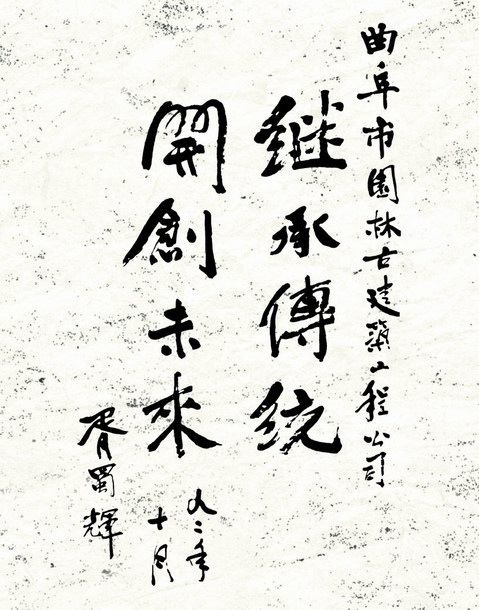 曲阜市園林古建築工程公司
継承傳統
開創未來
九二年
十月
胥蜀輝